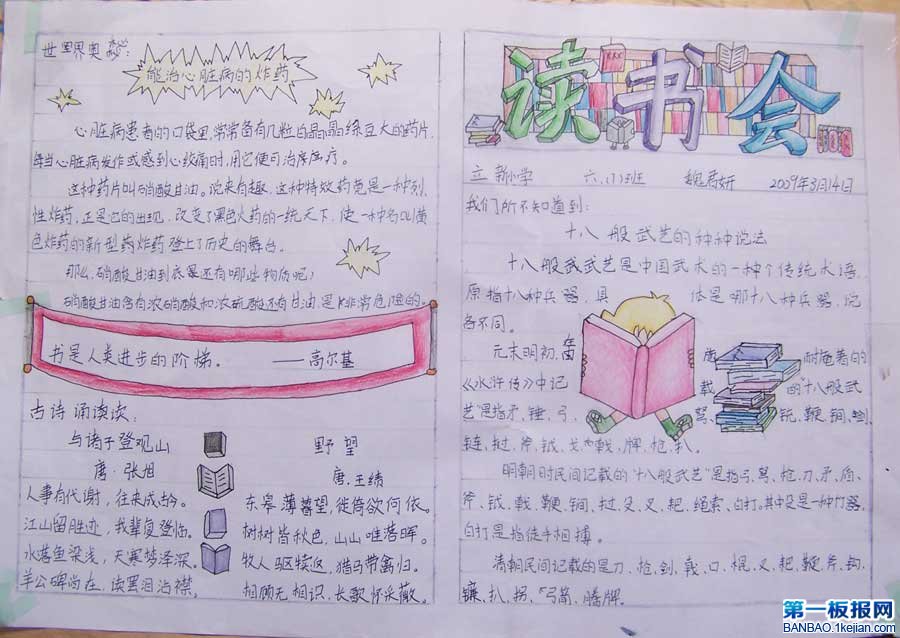 世界奥秘:
能治心脏病的炸药
心脏病患者的口袋里,常常备有几粒白晶晶绿豆大的药片,
每当心脏病发作或感到心绞痛时,用它便可治疗医疗。
这种药片叫硝酸甘油。说来有趣,这种特效药竟是一种烈
性炸药,正是它的出现,改变了黑色火药的一统天下,使一种名叫黄
色炸药的新型药炸药登上了历史的舞台。
那么,硝酸甘油到底还有哪些物质呢?
硝酸甘油含有浓硝酸和浓硫酸还有甘油,是非常危险的。
书是人类进步的阶梯。 ——高尔基
古诗诵读:
与诸子登观山
唐·张旭
人事有代谢,往来成古今。
江山留胜迹,我辈复登临。
水落鱼梁浅,天寒梦泽深。
羊公碑尚在,读罢泪沾襟。
野望
唐,王绩
东皋薄暮望,徙倚欲何依。
树树皆秋色,山山唯落晖。
牧人驱犊返,猎马带禽归。
相顾无相识,长歌怀采薇。
读书会
立新小学 六、(1)班 2009年3月14日
我们所不知道到:
十八般武艺的种种说法
十八般武武艺是中国武术的一种个传统术语,
原指十八种兵器,具体是哪十八种兵器,说
各不同。
元末明初,施耐庵著的
《水浒传》中记载的"十八般武
艺"是指矛、锤、弓、弩、铳、鞭、锏、剑、
链、挝、斧、钺、戈、戟、牌、枪、扒。
明朝时民间记载的"十八般武艺"是指弓、弩、枪、刀、矛、盾、
斧、钺、戟、鞭、锏、挝、殳、叉、耙、绳索、白打,其中殳是一种竹器,
白打是指徒手相搏。
清朝民间记载的是刀、枪、剑、戟、口、棍、叉、耙、鞭、斧、钩、
镰、扒、拐、弓箭、藤牌。
第一板报网
BANBAO.1kejian.com